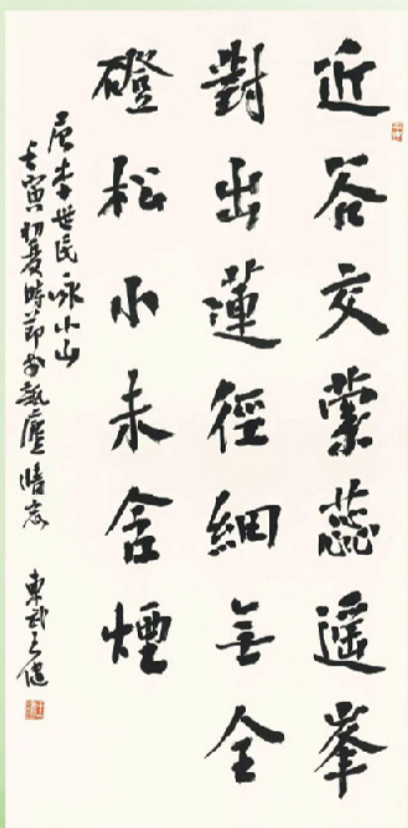 近谷交縈蕊遥峯
對出蓮徑細無全
磴松小未含煙
唐李世民詠小山
壬寅初夏時節於
東武王健